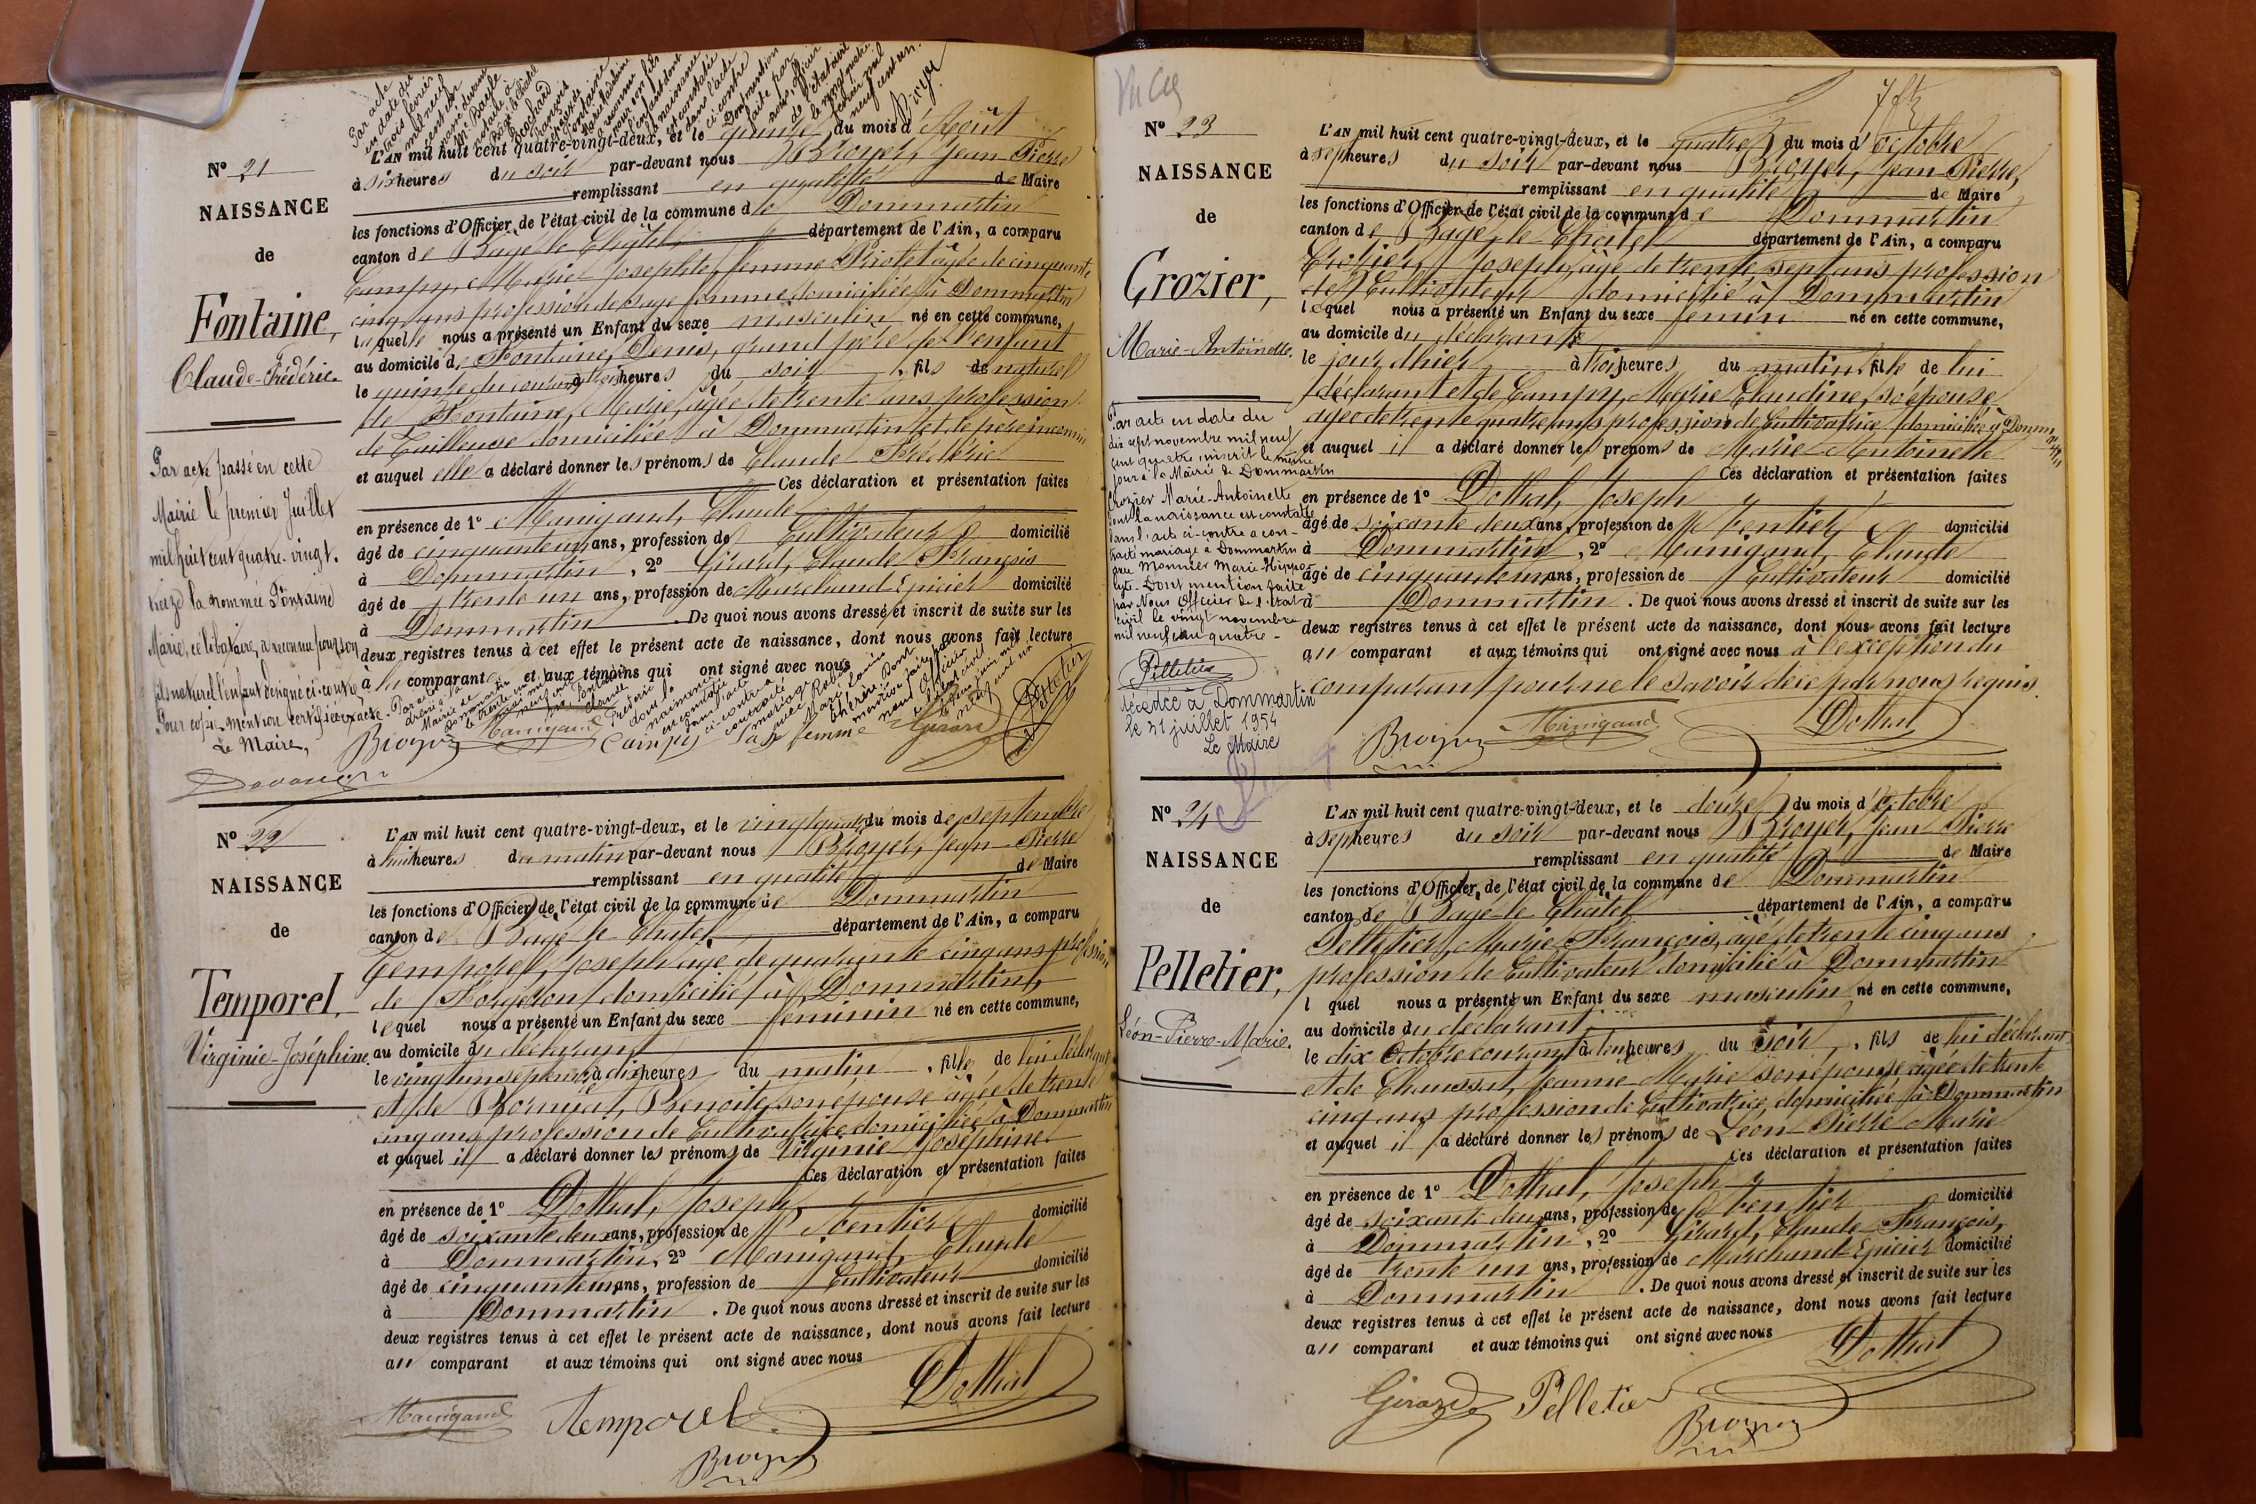 Par acte
en date du
trois février
mil neuf
cent
Me Bayle
notaire à
Bâgé-le-Châtel
Brochard
François
Fontaine
Marie
a reconnu
pour son fils
l'enfant dont
la naissance
est constatée
dans l'acte
ci-contre
Dont mention
faite par
nous, officier
de l'état civil
neuf cent un.
Broyer
No 21
NAISSANCE
de
Fontaine,
Claude-Frédéric.
L'AN mil huit cent quatre-vingt-deux, et le quinze du mois d'Août
à six heures du soir par-devant nous Broyer, Jean-Pierre
remplissant en qualité de Maire
les fonctions d'Officier de l'état civil de la commune de Dommartin
canton de Bâgé-le-Châtel département de l'Ain, a comparu
Campy, Marie Josephte, femme Piolet âgée de cinquante
cinq ans profession de sage femme domiciliée à Dommartin
laquelle nous a présenté un Enfant du sexe masculin né en cette commune,
au domicile de Fontaine, Denis, grand père de l'enfant
le quinze du courant à trois heures du soir, fils naturel
de Fontaine, Marie, âgée de trente ans profession
de Tailleuse domiciliée à Dommartin et de père inconnu
et auquel elle a déclaré donner les prénoms de Claude Frédéric
Ces déclaration et présentation faites
en présence de 1o Manigand, Claude
âgé de cinquante un ans, profession de Cultivateur domicilié
à Dommartin, 2o Girard, Claude François
âgé de trente un ans, profession de Marchand Epicier domicilié
à Dommartin. De quoi nous avons dressé et inscrit de suite sur les
deux registres tenus à cet effet le présent acte de naissance, dont nous avons fait lecture
à la comparant et aux témoins qui ont signé avec nous
Broyer Manigand Campy femme Girard
Par acte passé en cette
Mairie le premier Juillet
mil huit cent quatre-vingt-
treize la nommée Fontaine
Marie, célibataire, a reconnu pour son
fils naturel l'enfant désigné ci-contre
Pour copie mention certifiée exacte.
Le Maire,
Par acte
dressé à la
Mairie de
Dommartin
Fontaine
Claude
Frédéric
dont la
naissance
est constatée
dans l'acte
ci-contre a
contracté
mariage
avec
Marie Louise
Dont
mention faite par
nous Officier
de l'état civil
Pelletier
No 22
NAISSANCE
de
Temporel,
Virginie-Joséphine.
L'AN mil huit cent quatre-vingt-deux, et le vingt quatre du mois de septembre
à huit heures du matin par-devant nous Broyer, Jean-Pierre
remplissant en qualité de Maire
les fonctions d'Officier de l'état civil de la commune de Dommartin
canton de Bâgé-le-Châtel département de l'Ain, a comparu
Temporel, Joseph âgé de quarante cinq ans profession
de Forgeron domicilié à Dommartin,
lequel nous a présenté un Enfant du sexe féminin né en cette commune,
au domicile du déclarant
le vingt un septembre à dix heures du matin, fille de lui déclarant
et de Bornuat, Benoite, son épouse âgée de trente
cinq ans profession de Cultivatrice domiciliée à Dommartin
et auquel il a déclaré donner les prénoms de Virginie Joséphine
Ces déclaration et présentation faites
en présence de 1o Dothal, Joseph
âgé de soixante deux ans, profession de Rentier domicilié
à Dommartin, 2o Manigand, Claude
âgé de cinquante un ans, profession de Cultivateur domicilié
à Dommartin. De quoi nous avons dressé et inscrit de suite sur les
deux registres tenus à cet effet le présent acte de naissance, dont nous avons fait lecture
au comparant et aux témoins qui ont signé avec nous
Dothal
Manigand Temporel
Broyer
No 23
NAISSANCE
de
Crozier,
Marie-Antoinette.
L'AN mil huit cent quatre-vingt-deux, et le quatre du mois d'octobre
à sept heures du soir par-devant nous Broyer, Jean-Pierre,
remplissant en qualité de Maire
les fonctions d'Officier de l'état civil de la commune de Dommartin
canton de Bâgé-le-Châtel département de l'Ain, a comparu
Crozier, Joseph âgé de trente sept ans profession
de Cultivateur domicilié à Dommartin
lequel nous a présenté un Enfant du sexe féminin né en cette commune,
au domicile du déclarant
le jour d'hier à trois heures du matin, fille de lui
déclarant et de Campy, Marie Claudine, son épouse
âgée de trente quatre ans profession de Cultivatrice domiciliée à Dommartin
et auquel il a déclaré donner les prénoms de Marie Antoinette
Ces déclaration et présentation faites
en présence de 1o Dothal, Joseph
âgé de soixante deux ans, profession de Rentier domicilié
à Dommartin, 2o Manigand, Claude
âgé de cinquante un ans, profession de Cultivateur domicilié
à Dommartin. De quoi nous avons dressé et inscrit de suite sur les
deux registres tenus à cet effet le présent acte de naissance, dont nous avons fait lecture
au comparant et aux témoins qui ont signé avec nous à l'exception du
comparant pour ne le savoir de ce par nous requis.
Broyer Manigand Dothal
Par acte en date du
dix sept novembre mil neuf
cent quatre inscrit le même
jour à la Mairie de Dommartin
Crozier Marie-Antoinette
dont la naissance est constatée
dans l'acte ci-contre a con-
tracté mariage à Dommartin
avec Monnier Marie Hippo-
lyte. Dont mention faite
par Nous Officier de l'état
civil le vingt novembre
mil neuf cent quatre -
Pelletier
Décédée à Dommartin
le 31 juillet 1954
Le Maire
No 24
NAISSANCE
de
Pelletier,
Léon-Pierre-Marie.
L'AN mil huit cent quatre-vingt-deux, et le douze du mois d'Octobre
à sept heures du soir par-devant nous Broyer, Jean Pierre
remplissant en qualité de Maire
les fonctions d'Officier de l'état civil de la commune de Dommartin
canton de Bâgé-le-Châtel département de l'Ain, a comparu
Pelletier, Marie François, âgé de trente cinq ans
profession de Cultivateur domicilié à Dommartin
l quel nous a présenté un Enfant du sexe masculin né en cette commune,
au domicile du déclarant
le dix Octobre courant à onze heures du soir, fils de lui déclarant
et de Chaussat, Jeanne Marie son épouse âgée de trente
cinq ans profession de Cultivatrice, domiciliée à Dommartin
et auquel il a déclaré donner les prénoms de Léon Pierre Marie
Ces déclaration et présentation faites
en présence de 1o Dothal, Joseph
âgé de soixante deux ans, profession de rentier domicilié
à Dommartin, 2o Girard, Claude François,
âgé de trente un ans, profession de Marchand Epicier domicilié
à Dommartin. De quoi nous avons dressé et inscrit de suite sur les
deux registres tenus à cet effet le présent acte de naissance, dont nous avons fait lecture
au comparant et aux témoins qui ont signé avec nous
Dothal
Girard Pelletier
Broyer